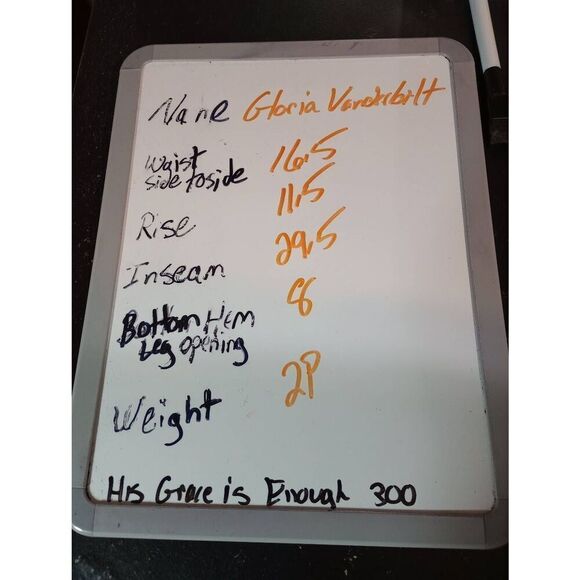 Name Gloria Vanderbilt
Waist
side to side 16.5
Rise 11.5
Inseam 29.5
Bottom Hem
Leg opening 8
Weight 2P
His Grace is Enough 300